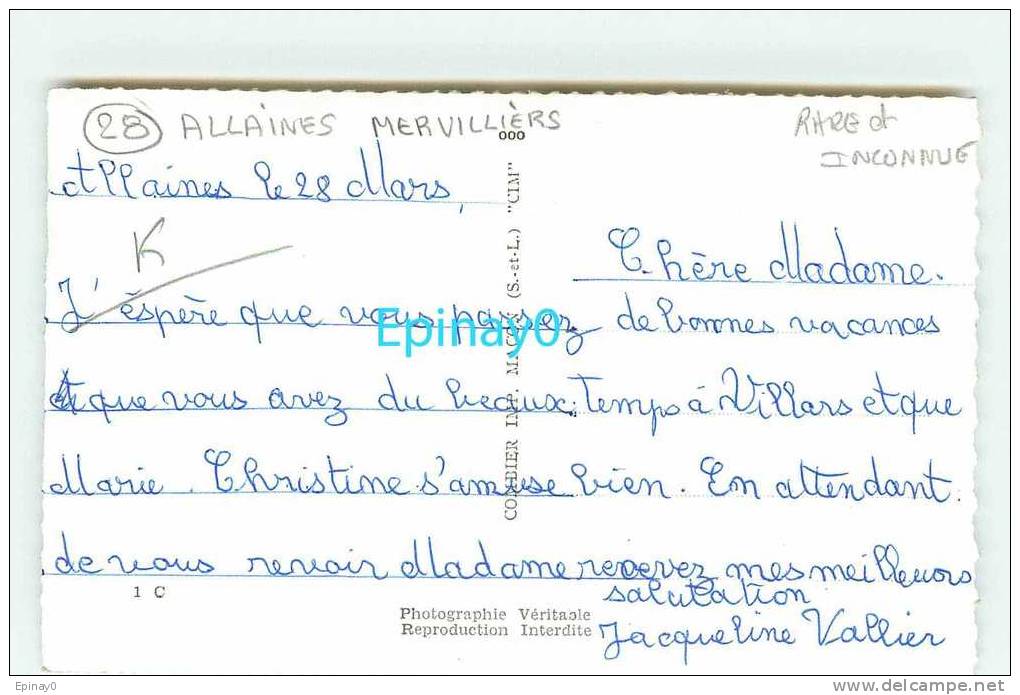 28 ALLAINES MERVILLIÈRS
RARE et
INCONNUE
ooo
Allaines le 28 Mars,
K
Chère Madame.
J'éspère que vous passez de bonnes vacances
et que vous avez du beaux temps à Villars et que
Marie. Christine s'amuse bien. En attendant
de vous revoir Madame recevez mes meilleuors
salutation
Jacqueline Vallier
1 C
Photographie Véritable
Reproduction Interdite
COMBIER IMP. MACON (S.-et-L.) "CIM"
Epinay0
Epinay0
delcampe.net